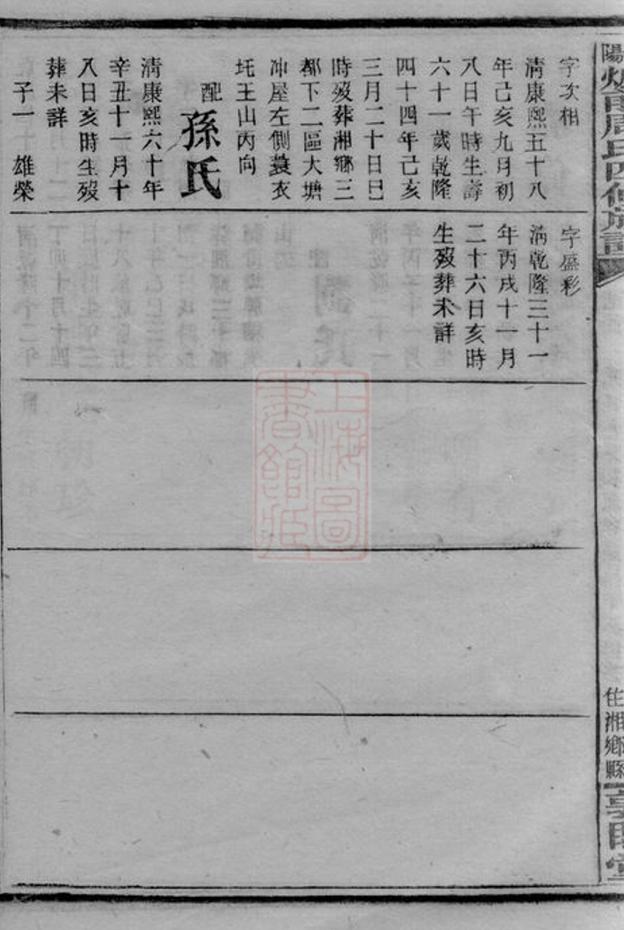 周氏四修族譜
住湘鄉縣
字次相
清康熙五十八
年己亥九月初
八日午時生壽
六十一歲乾隆
四十四年己亥
三月二十日巳
時歿葬湘鄉三
都下二區大塘
冲屋左側蓑衣
圫王山丙向
配孫氏
清康熙六十年
辛丑十一月十
八日亥時生歿
葬未詳
子一 雄榮
字盛彩
清乾隆三十一
年丙戌十一月
二十六日亥時
生歿葬未詳
上海圖
書館藏